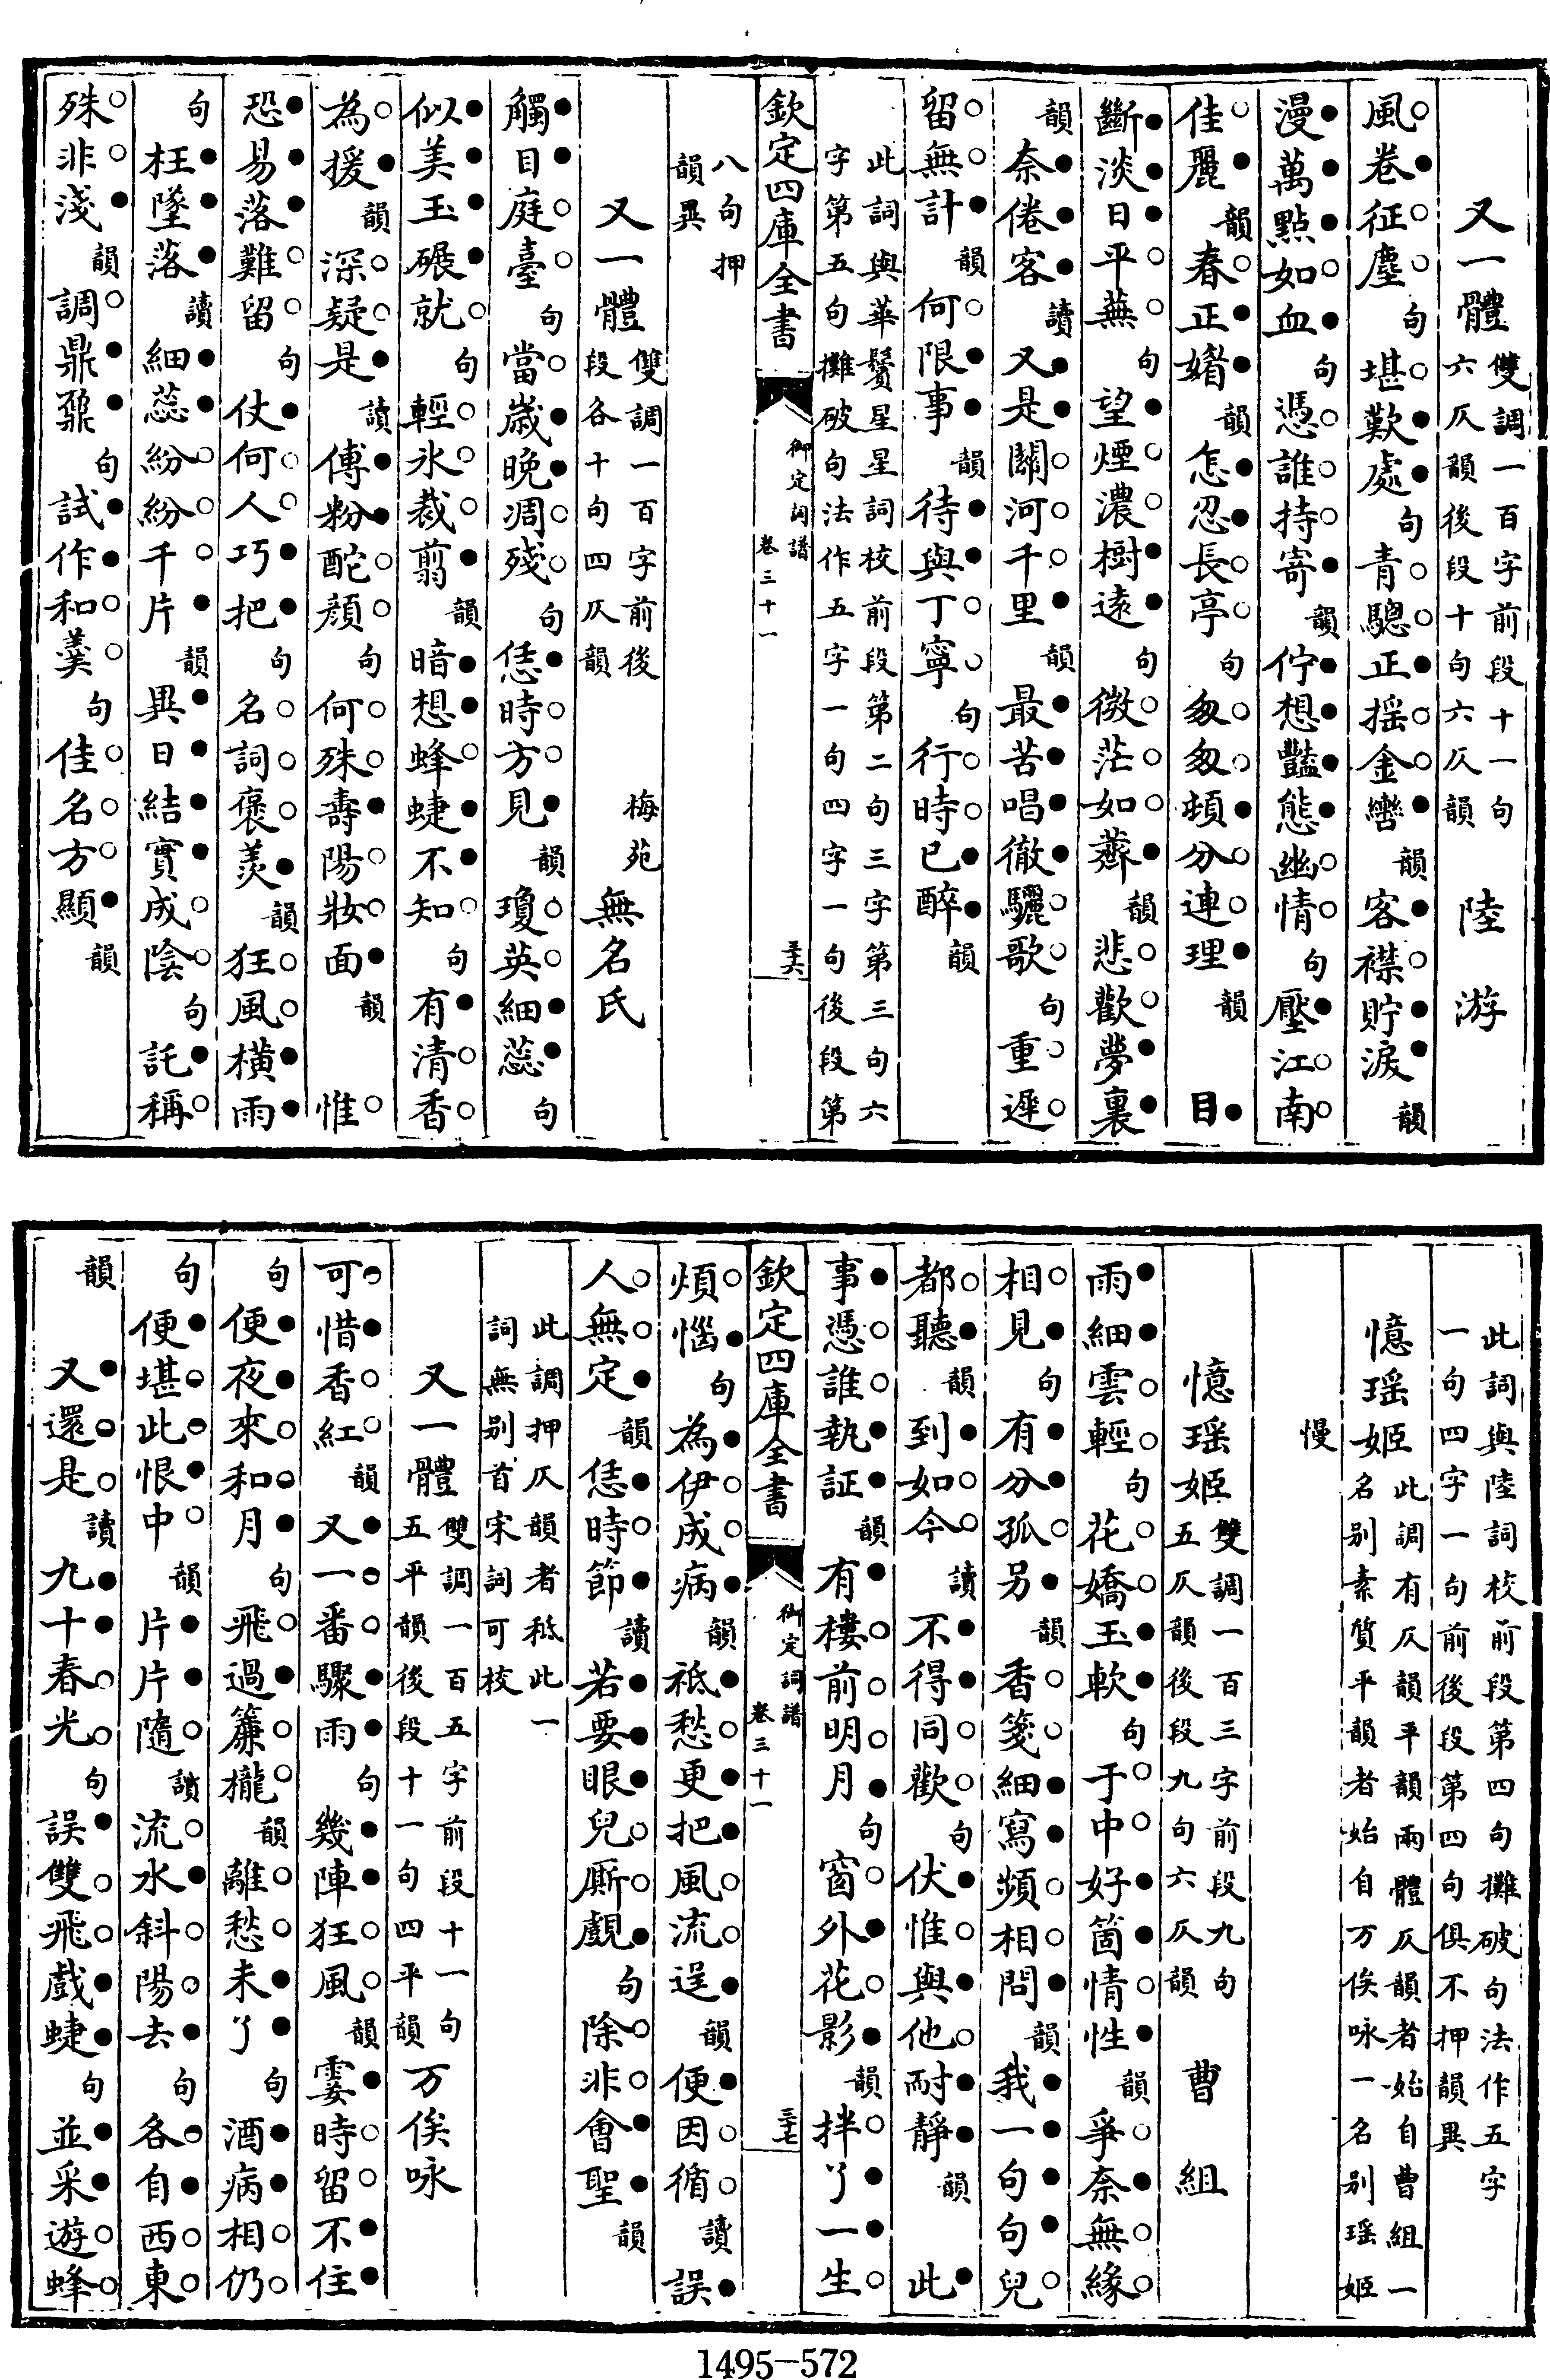 又一體雙調一百字前段十一句六仄韻後段十句六仄韻 陸游
風卷征塵句堪歎處句青驄正搖金轡韻客襟貯淚韻
漫萬點如血句憑誰持寄韻佇想豔態幽情句壓江南
佳麗韻春正媠韻怎忍長亭句匆匆頓分連理韻 目
斷淡日平蕪句望煙濃樹遠句微茫如薺韻悲歡夢裏
韻奈倦客讀又是關河千里韻最苦唱徹驪歌句重遲
留無計韻何限事韻待與丁寧句行時已醉韻
此詞與華鬢星星詞校前段第二句三字第三句六
字第五句攤破句法作五字一句四字一句後段第
欽定四庫全書 御定詞譜 卷三十一 三六
八句押
韻異
又一體雙調一百字前後段各十句四仄韻 梅苑無名氏
觸目庭臺句當歲晚凋殘句恁時方見韻瓊英細蕊句
似美玉碾就句輕氷裁翦韻暗想蜂蜨不知句有清香
為援韻深疑是讀傅粉酡顏句何殊壽陽妝面韻 惟
恐易落難留句仗何人巧把句名詞褒羡韻狂風橫雨
句枉墜落讀細蕊紛紛千片韻異日結實成陰句託稱
殊非淺韻調鼎鼐句試作和羹句佳名方顯韻
此詞與陸詞校前段第四句攤破句法作五字
一句四字一句前後段第四句俱不押韻異
憶瑶姬此調有仄韻平韻兩體仄韻者始自曹組一名别素質平韻者始自万俟咏一名别瑶姬
慢
憶瑶姬雙調一百三字前段九句五仄韻後段九句六仄韻 曹組
雨細雲輕句花嬌玉軟句于中好箇情性韻爭奈無緣
相見句有分孤另韻香箋細寫頻相問韻我一句句兒
都聽韻到如今讀不得同歡句伏惟與他耐靜韻 此
事憑誰執証韻有樓前明月句窗外花影韻拌了一生
欽定四庫全書 御定詞譜 卷三十一 三七
煩惱句為伊成病韻祇愁更把風流逞韻便因循讀誤
人無定韻恁時節讀若要眼兒厮覷句除非會聖韻
此調押仄韻者祗此一
詞無别首宋詞可校
又一體雙調一百五字前段十一句五平韻後段十一句四平韻 万俟咏
可惜香紅韻又一番驟雨句幾陣狂風韻霎時留不住
句便夜來和月句飛過簾櫳韻離愁未了句酒病相仍
句便堪此恨中韻片片隨讀流水斜陽去句各自西東
韻 又還是讀九十春光句誤雙飛戲蜨句並采遊蜂
1495-572